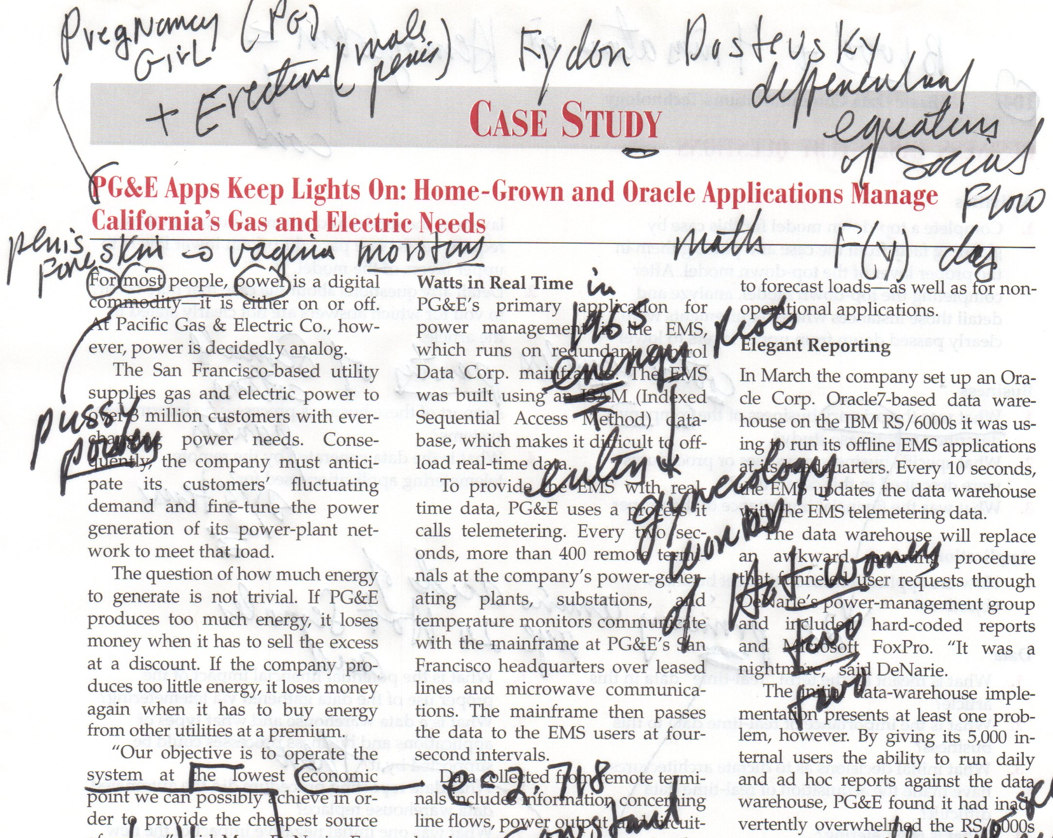 PregNancy (PG)
GirL
+ Erection (male
penis)
Fydon Dostevsky
differential
equations
of Social
Flow
CASE STUDY
PG&E Apps Keep Lights On: Home-Grown and Oracle Applications Manage
California's Gas and Electric Needs
penis
foreskin → vagina moisting
math F(y) day
For most people, power is a digital
commodity—it is either on or off.
At Pacific Gas & Electric Co., how-
ever, power is decidedly analog.
The San Francisco-based utility
supplies gas and electric power to
over 3 million customers with ever-
changing power needs. Conse-
quently, the company must antici-
pate its customers' fluctuating
demand and fine-tune the power
generation of its power-plant net-
work to meet that load.
The question of how much energy
to generate is not trivial. If PG&E
produces too much energy, it loses
money when it has to sell the excess
at a discount. If the company pro-
duces too little energy, it loses money
again when it has to buy energy
from other utilities at a premium.
"Our objective is to operate the
system at the lowest economic
point we can possibly achieve in or-
der to provide the cheapest source
pussy
Watts in Real Time
PG&E's primary application for
power management is the EMS,
which runs on redundant Control
Data Corp. mainframes. The EMS
was built using an ISAM (Indexed
Sequential Access Method) data-
base, which makes it difficult to off-
load real-time data.
To provide the EMS with real-
time data, PG&E uses a process it
calls telemetering. Every two sec-
onds, more than 400 remote termi-
nals at the company's power-gener-
ating plants, substations, and
temperature monitors communicate
with the mainframe at PG&E's San
Francisco headquarters over leased
lines and microwave communica-
tions. The mainframe then passes
the data to the EMS users at four-
second intervals.
Data collected from remote termi-
nals includes information concerning
line flows, power output, and circuit-
in
energy
gynecology
works
of Hot women
two
two
e=2.718
constant
to forecast loads—as well as for non-
operational applications.
Elegant Reporting
In March the company set up an Ora-
cle Corp. Oracle7-based data ware-
house on the IBM RS/6000s it was us-
ing to run its offline EMS applications
at its headquarters. Every 10 seconds,
the EMS updates the data warehouse
with the EMS telemetering data.
The data warehouse will replace
an awkward reporting procedure
that funneled user requests through
DeNarie's power-management group
and included hard-coded reports
and Microsoft FoxPro. "It was a
nightmare," said DeNarie.
The initial data-warehouse imple-
mentation presents at least one prob-
lem, however. By giving its 5,000 in-
ternal users the ability to run daily
and ad hoc reports against the data
warehouse, PG&E found it had inad-
vertently overwhelmed the RS/6000s